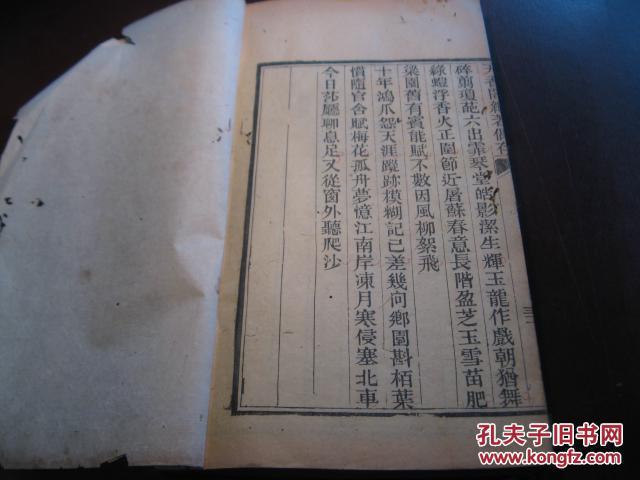 碎剪瓊葩六出霏琴堂皓影潔生輝玉龍作戲朝猶舞
綠螘浮香火正圍節近屠蘇春意長階盈芝玉雪苗肥
梁園舊有賓能賦不數因風柳絮飛
十年鴻爪怨天涯蹤跡模糊記已差幾向鄉園斟栢葉
慣隨官舍賦梅花孤舟夢憶江南岸凍月寒侵塞北車
今日莎廳聊息足又從窗外聽爬沙
孔夫子旧书网
www.kongfz.com